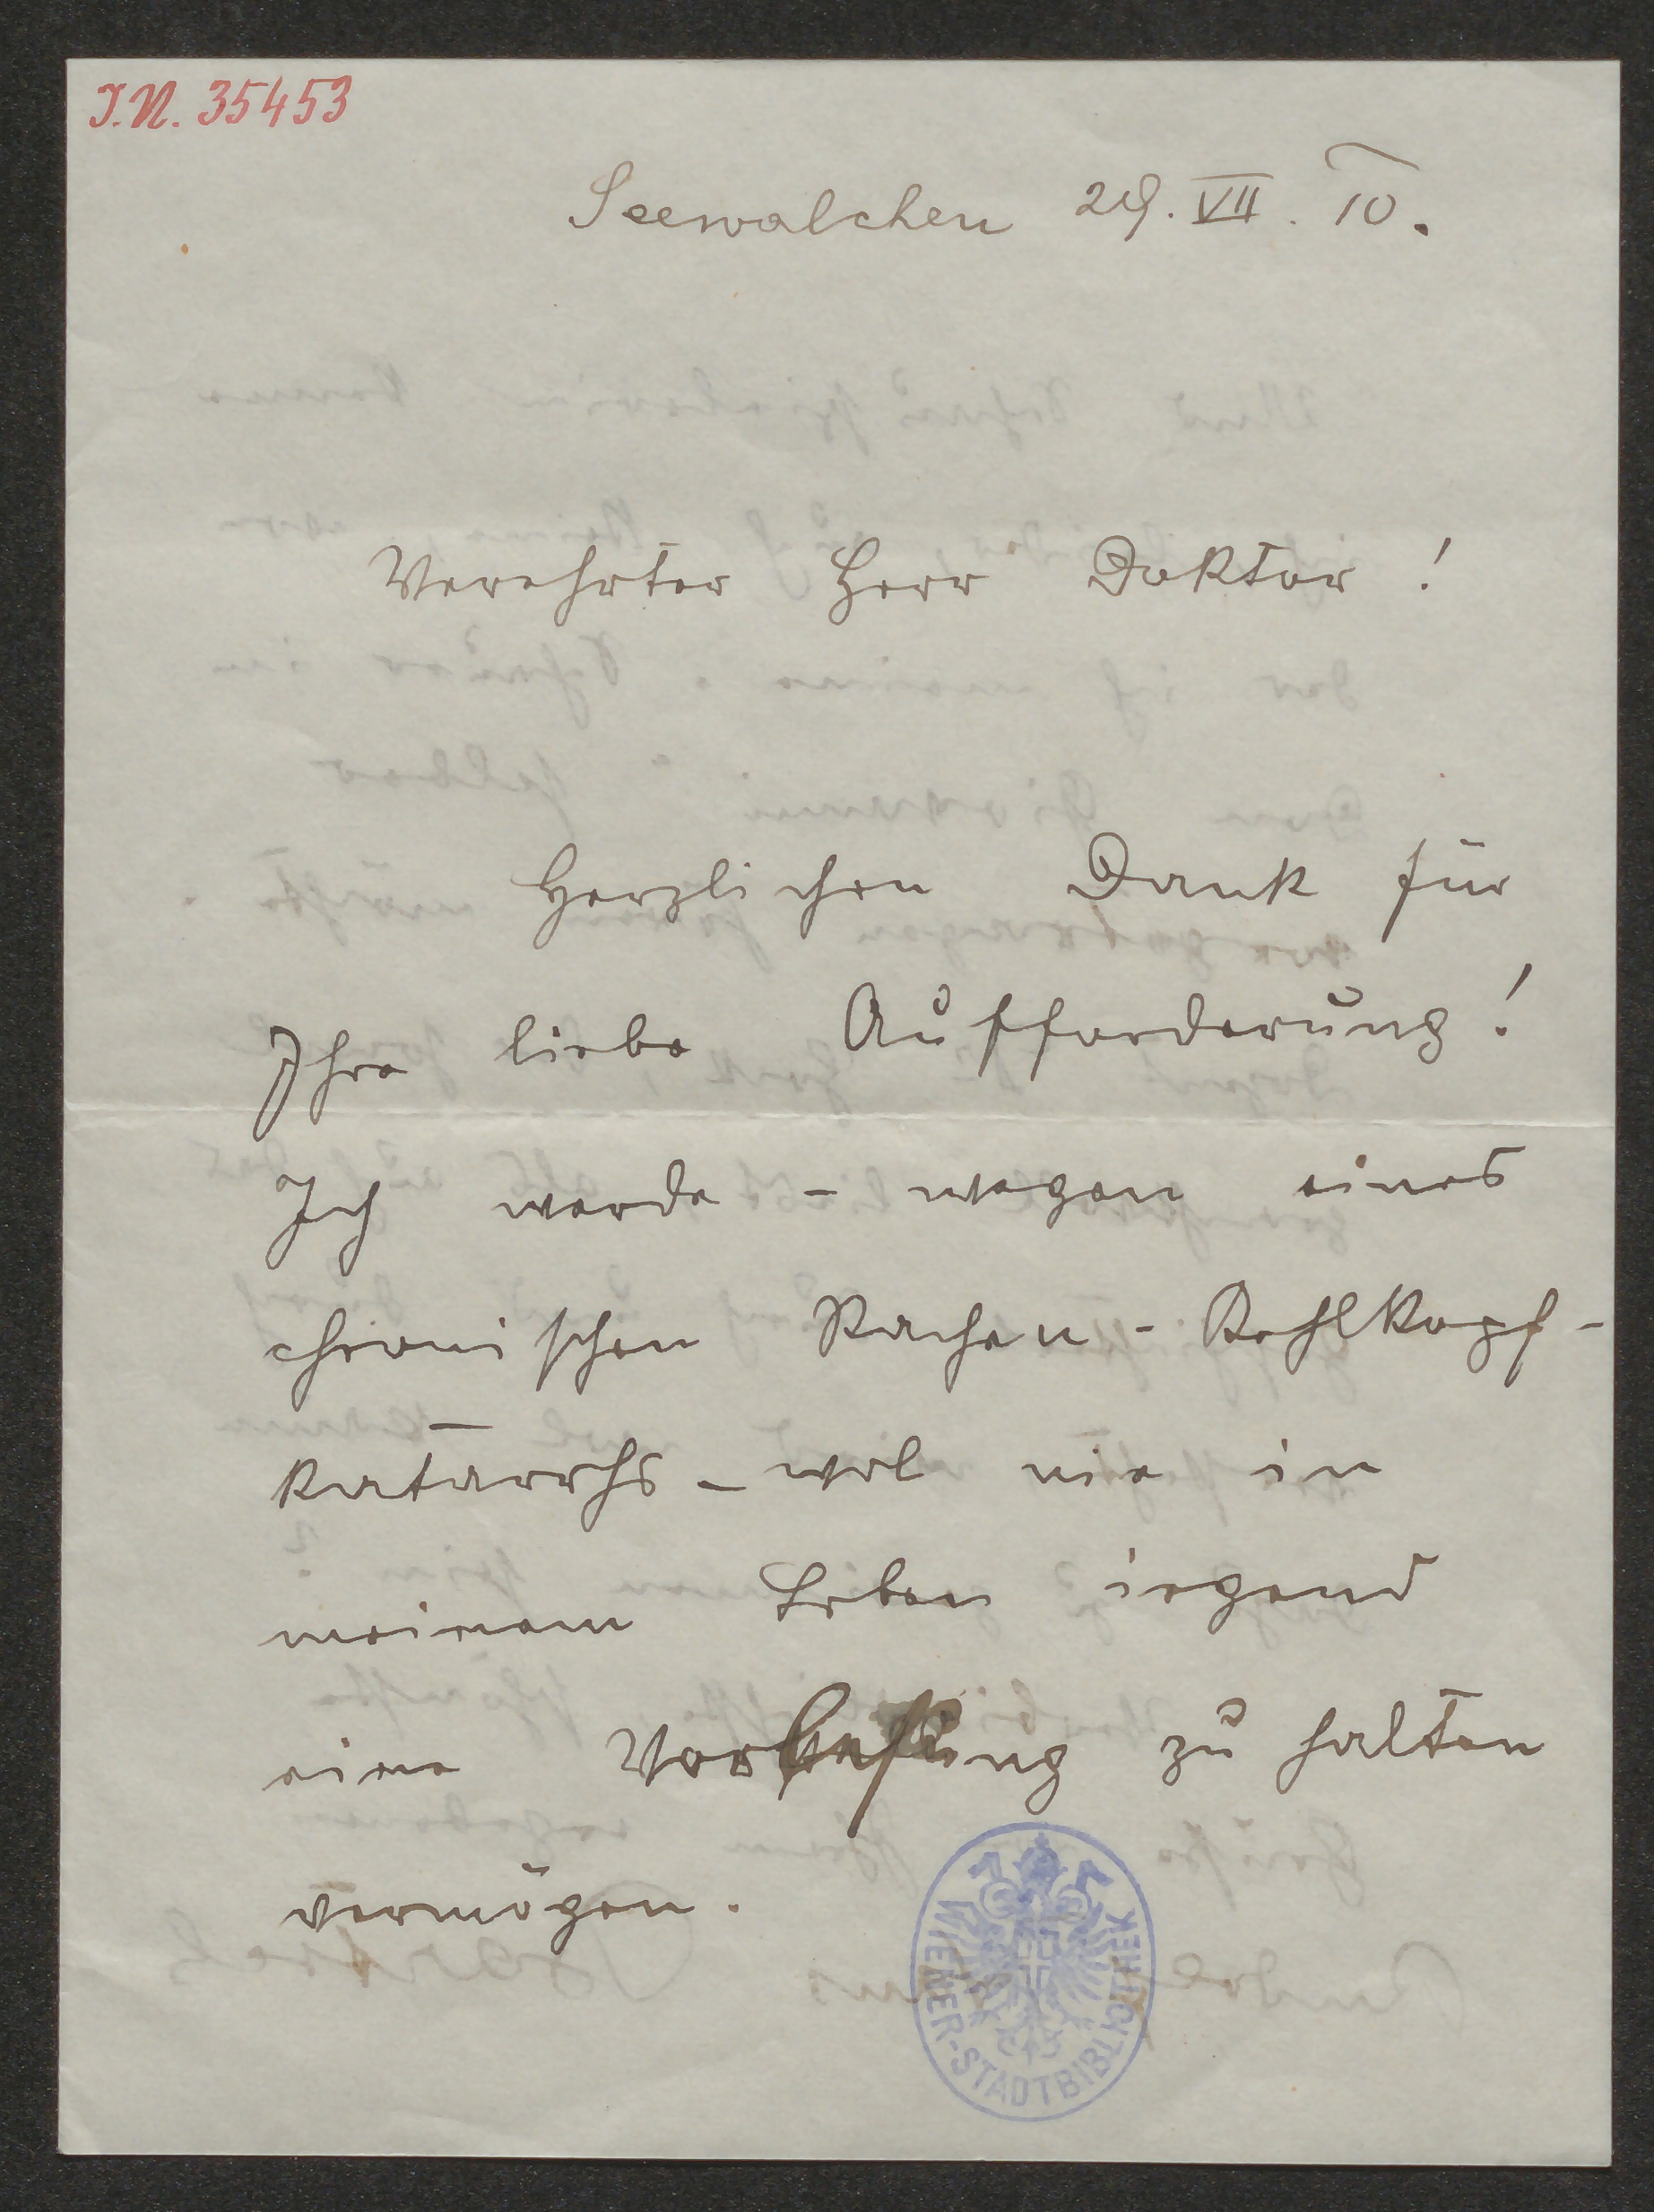 I.N. 35453
Seewalchen 29. VII. 10.
Verehrter Herr Doktor!
Herzlichen Dank für
Ihre liebe Aufforderung!
Ich werde – wegen eines
chronischen Rachen-Kehlkopf-
katarrhs – wol nie in
meinem Leben irgend
eine Vorlesung zu halten
vermögen.
WIENER-STADTBIBLIOTHEK